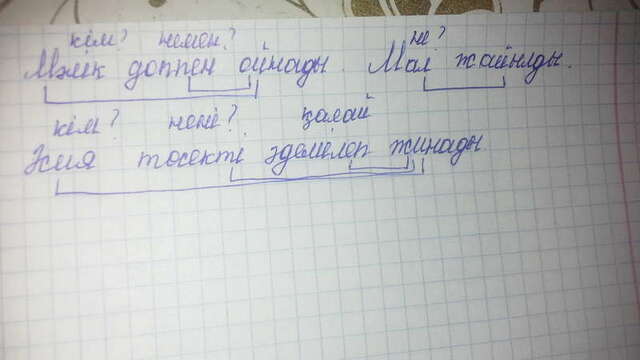 кім? немен? не?
Мәлік доппен ойнады. Мал жайылды.
кім? нені? қалай
Зия төсекті әдемілеп жинады